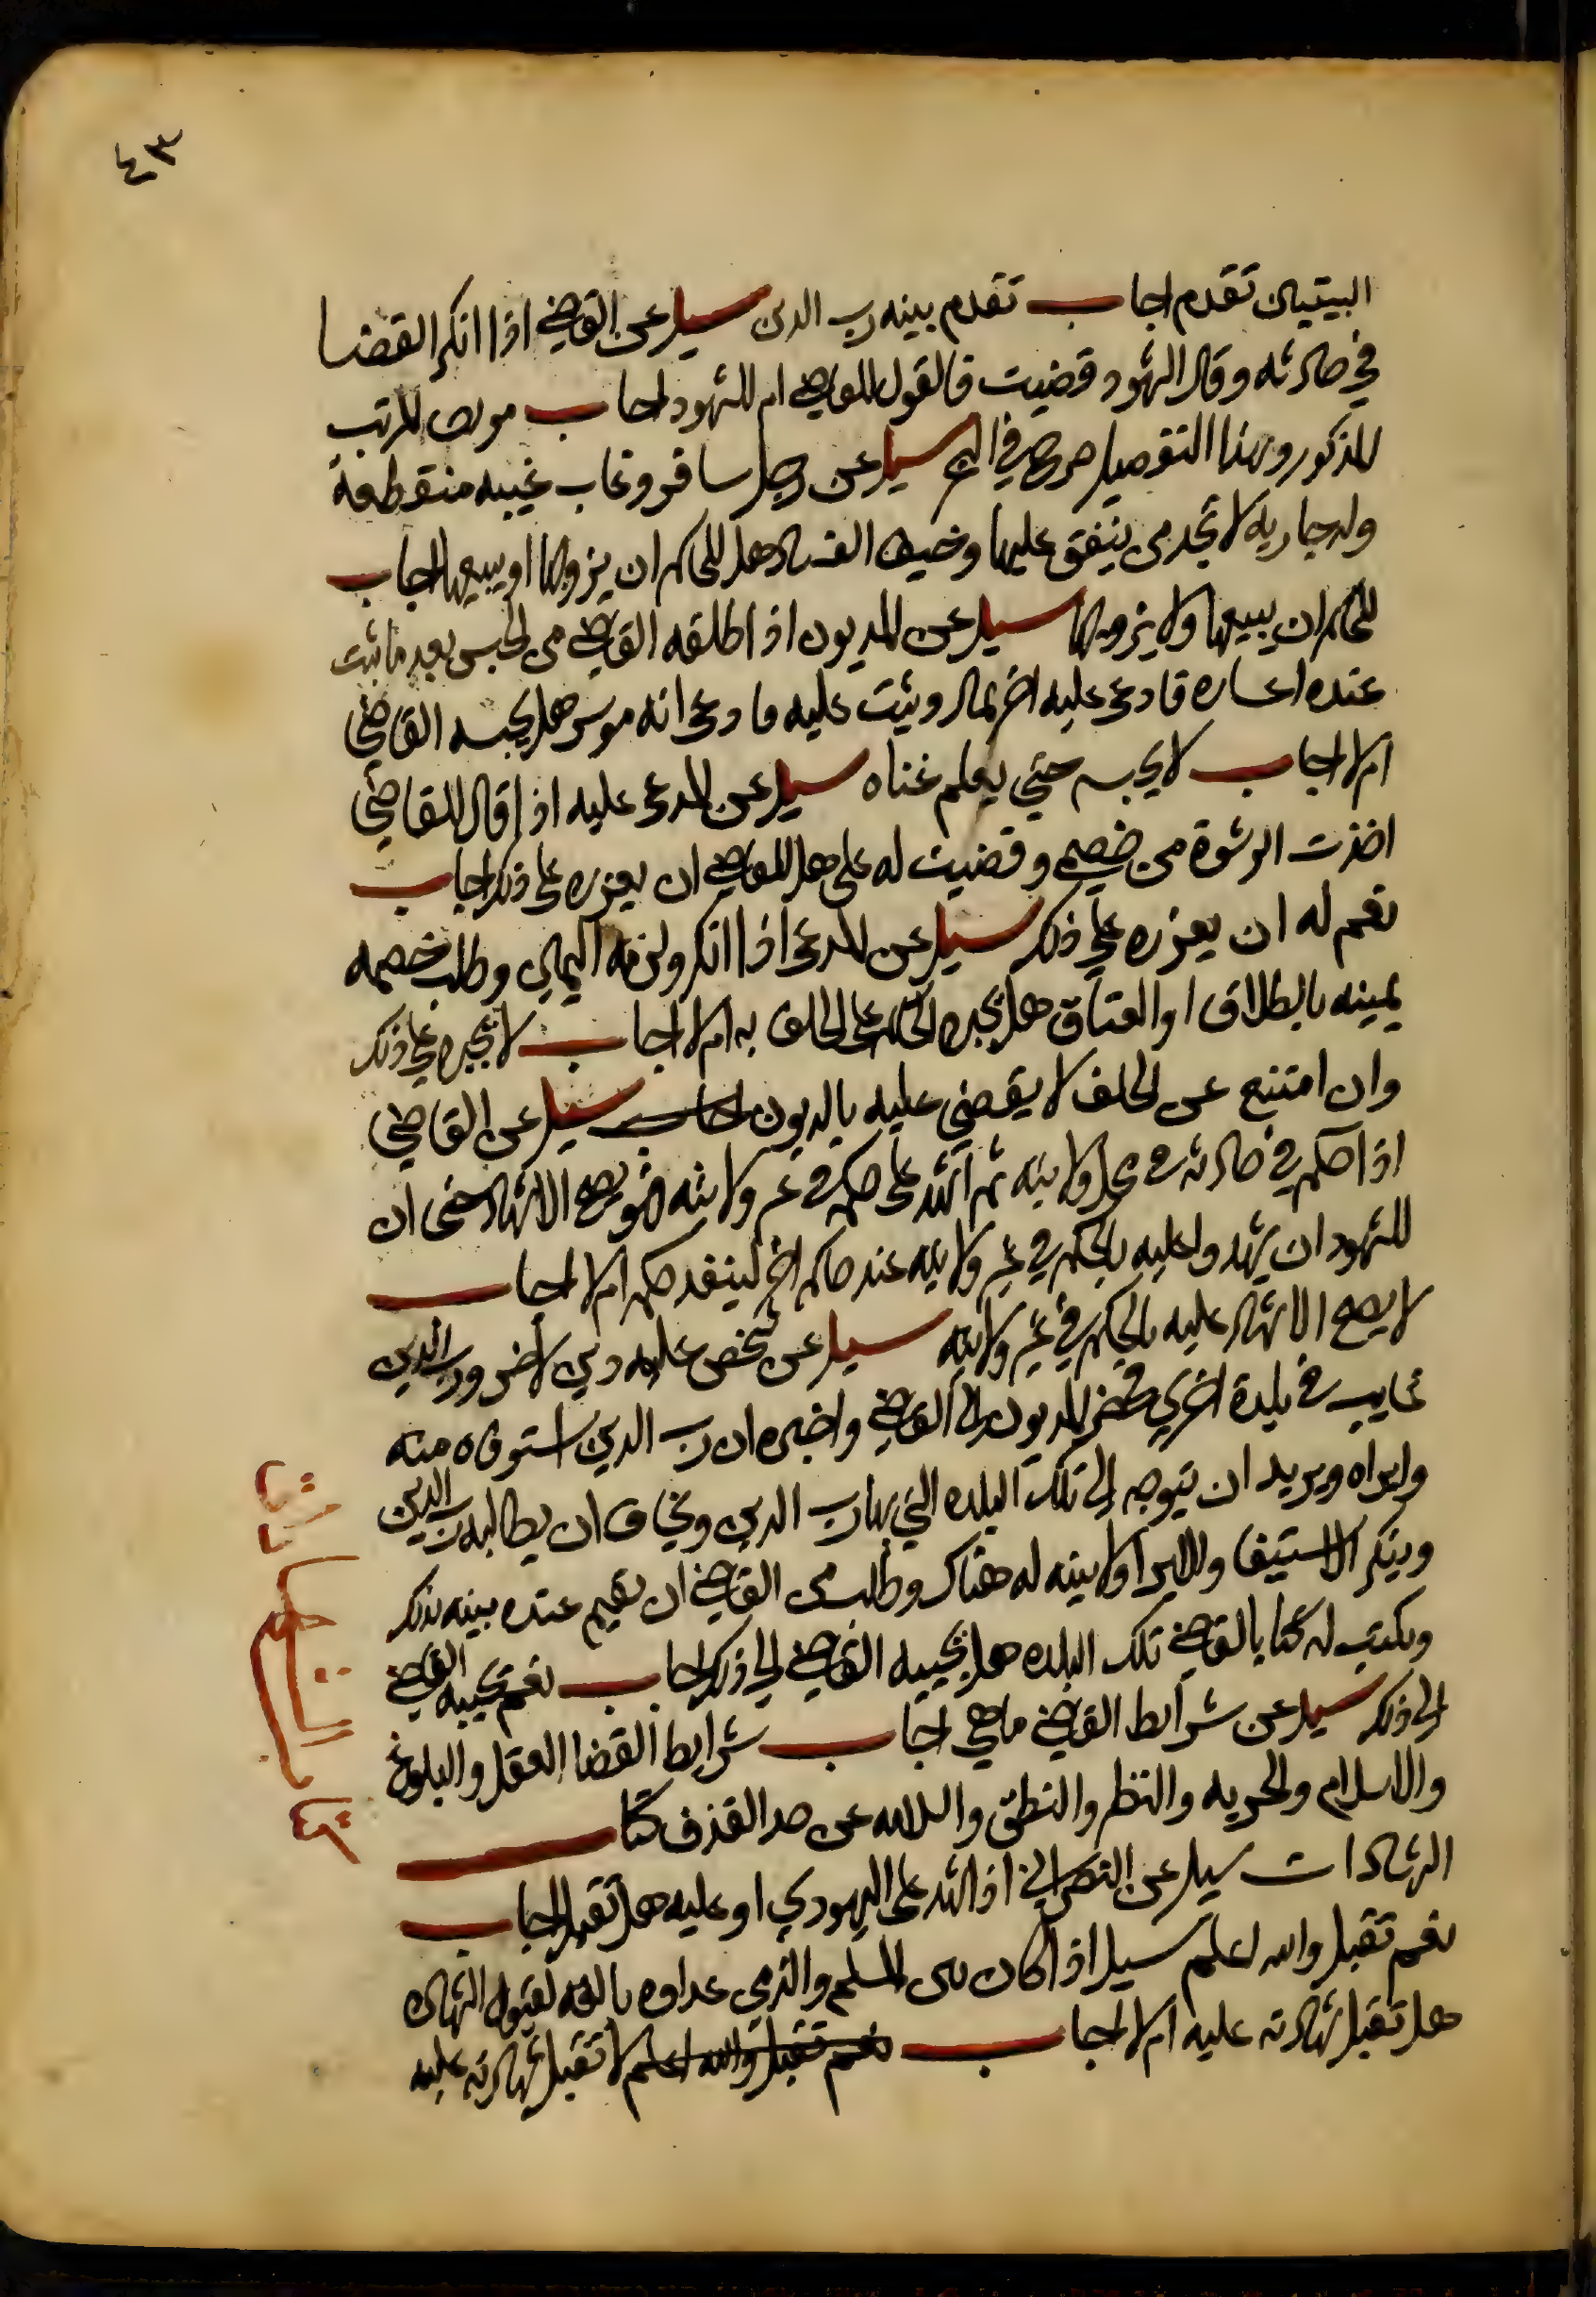 ٤٣
البينتين تقدم اجاب تقدم بينه رب الدين سيل عن القاضي اذا انكر القضا
في حادثه وقال الشهود قضيت فالقول للقاضي ام للشهود اجاب
المذكور وبهذا التفصيل صرح في سيل عن رجل سافر وغاب غيبه منقطعة
وله جاريه لا تجد من ينفق عليها وخيف الفساد هل للحاكم ان يزوجها او يبيعها اجاب
للحاكم ان يبيعها ولا يزوجها سيل عن المديون اذ اطلقه القاضي من الحبس بعد ما ثبت
عنده اعساره فادعى عليه اخر بمال ويثبت عليه وادعى انه موسر هل يحبسه القاضي
ام لا اجاب لا يحبسه حتي يعلم غناه سيل عن المدعى عليه اذ اقال للقاضي
اخذت الرشوة من خصمي وقضيت له علي هل للقاضي ان يعزره على ذلك اجاب
نعم له ان يعزره علي ذلك سيل عن المدعى اذا انكر ولزمه اليمين وطلب خصمه
يمينه بالطلاق او العتاق هل يجبره الحاكم على الحلف به ام لا اجاب لا يجبره علي ذلك
وان امتنع عن الحلف لا يقضي عليه بالديون اجاب سيل عن القاضي
اذ احكم في حادثه في محل ولايته ثم اشهد على حكمه في غير ولايته هو يصح الاشهاد حتى ان
للشهود ان يشهدوا عليه بالحكم في غير ولايته عند حاكم اخر لينفذ حكمه ام لا اجاب
لا يصح الاشهاد عليه بالحكم في غير ولايته سيل عن شخص عليه دين لاخر ورب الدين
غايب في بلدة اخري فحضر المديون الى القاضي واخبره ان رب الدين استوفاه منه
وابراه ويريد ان يتوجه الى تلك البلده التي بها رب الدين ويخاف ان يطالبه رب الدين
وينكر الاستيفا والابرا ولا بينه له هناك وطلب من القاضي ان يقيم عنده بينه بذلك
ويكتب له كتابا لقاضي تلك البلده هل يجيبه القاضي الى ذلك اجاب نعم يجيبه القاضي
الى ذلك سيل عن شرايط القاضي ماهي اجاب شرايط القضا العقل والبلوغ
والاسلام والحريه والنظر والنطق والسلامه عن حد القذف كتاب
الشهادات سيل عن النصراني اذ اشهد على اليهودي او عليه هل تقبل اجاب
نعم تقبل والله اعلم سيل اذ اكان بين المسلم والذمي عداوه بالغه لقبول الشهاده
هل تقبل شهادته عليه ام لا اجاب نعم تقبل والله اعلم لا تقبل شهادته عليه
كتاب الشهادات